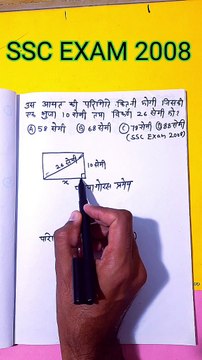 SSC EXAM 2008
उस आयत की परिमिति कितनी होगी जिसकी
एक भुजा 10 सेमी तथा विकर्ण 26 सेमी हो?
Ⓐ 58 सेमी Ⓑ 68 सेमी Ⓒ 78 सेमी Ⓓ 88 सेमी
(SSC Exam 2008)
26 सेमी
10 सेमी
x
प्रमेय
परि